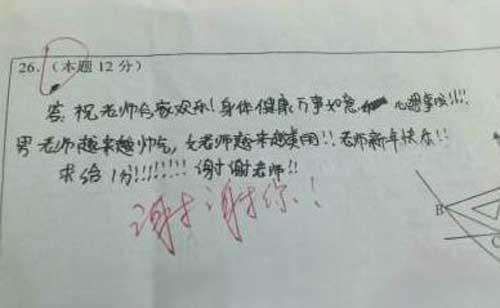 26.（本题12分）
答：祝老师合家欢乐！身体健康 万事如意 心想事成!!!
男老师越来越帅气，女老师越来越美丽!! 老师新年快乐!!
求给1分!!!!!!! 谢谢老师!!
谢谢你!!
B
C